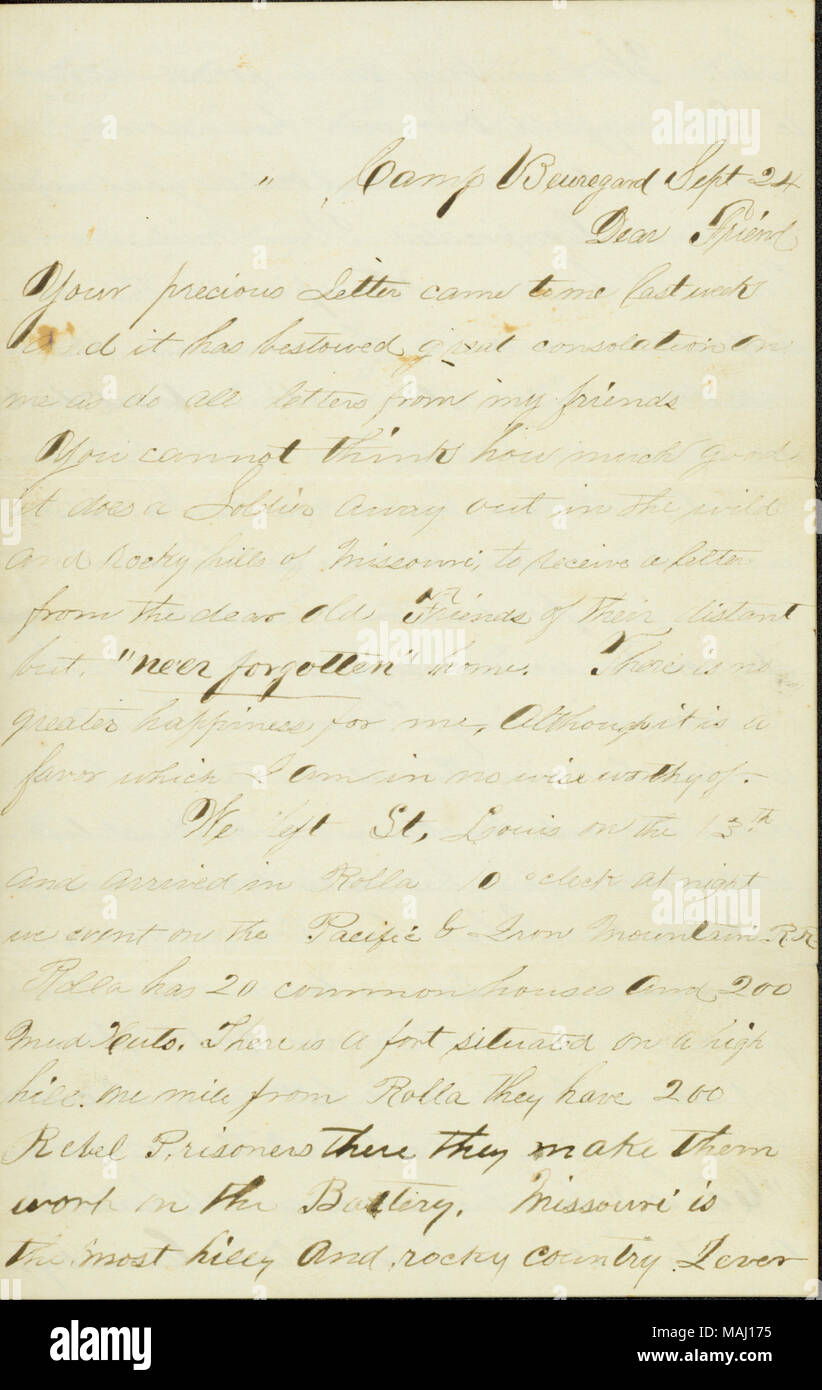 " , Camp Beuregard Sept 24
Dear Friend
Your precious Letter came to me last week
and it has bestowed great consolation on
me as do all letters from my friends
You cannot think how much good
it does a Soldier away out in the wild
and Rocky hills of Misouri, to receive a letter
from the dear old Friends of their distant
but, "neer forgotten" home. There is no
greater happiness for me, Although it is a
favor which I am in no wise worthy of.
We left St, Louis on the 13th
and arrived in Rolla 10 oclock at night
we went on the Pacific & Iron Mountain R.R
Rolla has 20 common houses and 200
Mud Huts. There is a fort situated on a high
hill. one mile from Rolla they have 200
Rebel Prisoners there they make them
work on the Battery. Missouri is
the most hilly and rocky country I ever
alamy
a
alamy
Image ID: MAJ175
www.alamy.com